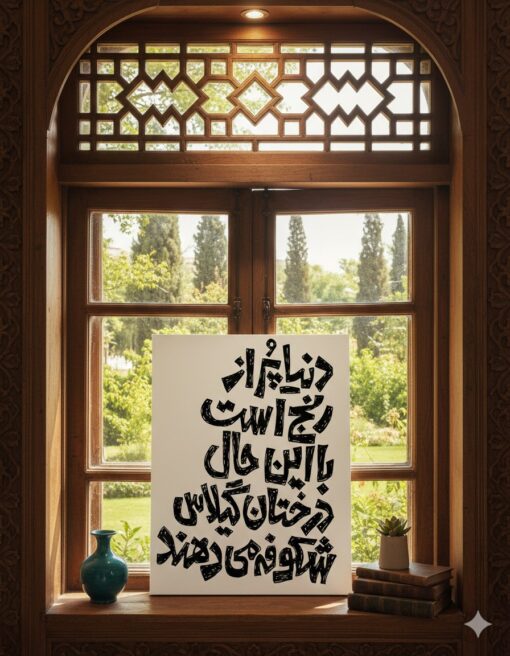 دنیا پُر از
رنج است
با این حال
درختان گیلاس
شکوفه می دهند